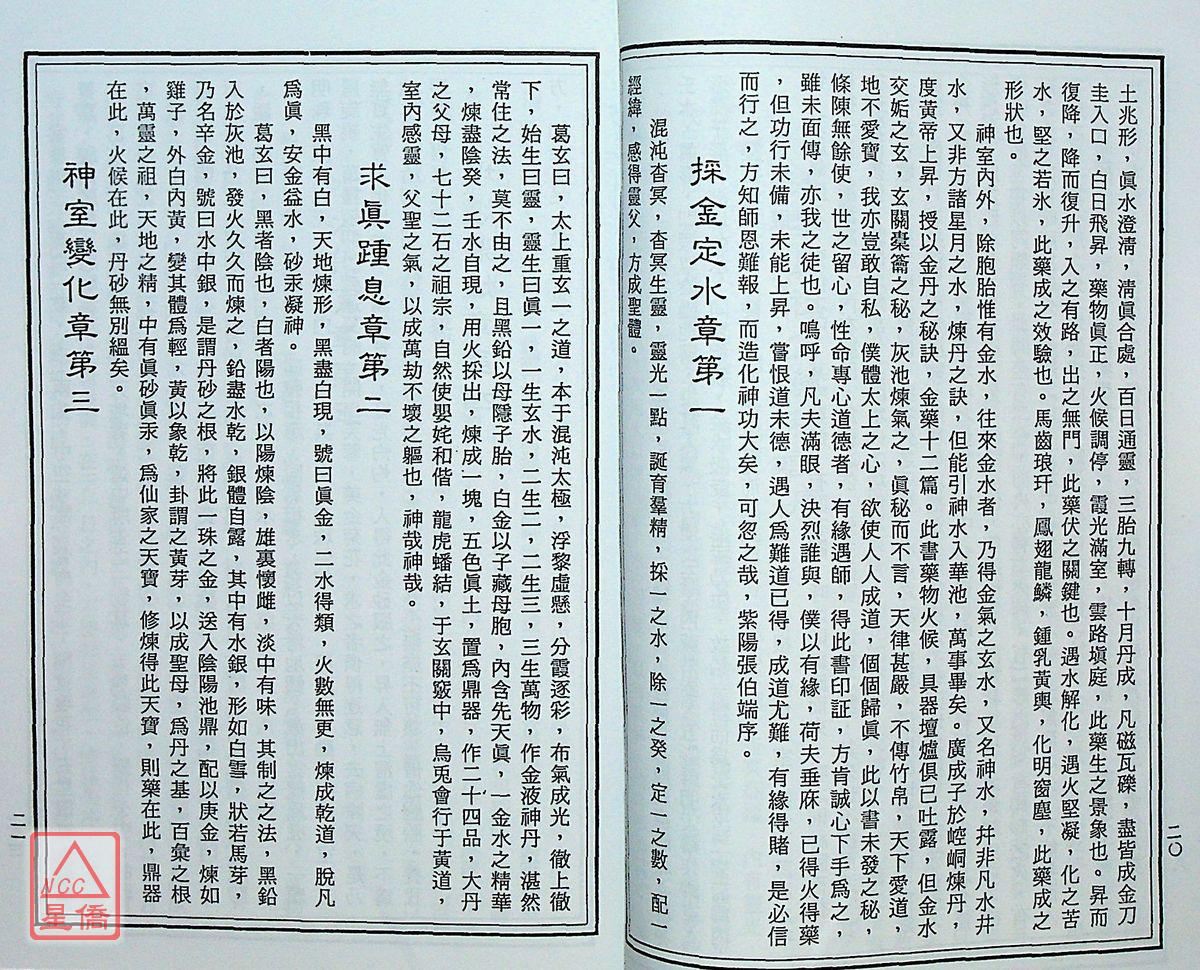 二〇
土兆形，眞水澄淸，淸眞合處，百日通靈，三胎九轉，十月丹成，凡磁瓦礫，盡皆成金刀
圭入口，白日飛昇，藥物眞正，火候調停，霞光滿室，雲路塡庭，此藥生之景象也。昇而
復降，降而復升，入之有路，出之無門，此藥伏之關鍵也。遇水解化，遇火堅凝，化之苦
水，堅之若氷，此藥成之效驗也。馬齒琅玕，鳳翅龍鱗，鍾乳黃輿，化明窗塵，此藥成之
形狀也。
神室內外，除胞胎惟有金水，往來金水者，乃得金氣之玄水，又名神水，幷非凡水井
水，又非方諸星月之水，煉丹之訣，但能引神水入華池，萬事畢矣。廣成子於崆峒煉丹，
度黃帝上昇，授以金丹之秘訣，金藥十二篇。此書藥物火候，具器壇爐俱已吐露，但金水
交姤之玄，玄關橐籥之秘，灰池煉氣之，眞秘而不言，天律甚嚴，不傳竹帛，天下愛道，
地不愛寶，我亦豈敢自私，僕體太上之心，欲使人人成道，個個歸眞，此以書未發之秘，
條陳無餘使，世之留心，性命專心道德者，有緣遇師，得此書印証，方肯誠心下手爲之，
雖未面傳，亦我之徒也。嗚呼，凡夫滿眼，決烈誰與，僕以有緣，荷夫垂庥，已得火得藥
，但功行未備，未能上昇，嘗恨道未德，遇人爲難道已得，成道尤難，有緣得賭，是必信
而行之，方知師恩難報，而造化神功大矣，可忽之哉，紫陽張伯端序。
採金定水章第一
混沌杳冥，杳冥生靈，靈光一點，誕育羣精，採一之水，除一之癸，定一之數，配一
經緯，感得靈父，方成聖體。
葛玄曰，太上重玄一之道，本于混沌太極，浮黎虛懸，分霞逐彩，布氣成光，徹上徹
下，始生曰靈，靈生曰眞一，一生玄水，二生二，二生三，三生萬物，作金液神丹，湛然
常住之法，莫不由之，且黑鉛以母隱子胎，白金以子藏母胞，內含先天眞，一金水之精華
，煉盡陰癸，壬水自現，用火採出，煉成一塊，五色眞土，置爲鼎器，作二十四品，大丹
之父母，七十二石之祖宗，自然使嬰姹和偕，龍虎蟠結，于玄關竅中，烏兎會行于黃道，
室內感靈，父聖之氣，以成萬劫不壞之軀也，神哉神哉。
求眞踵息章第二
黑中有白，天地煉形，黑盡白現，號曰眞金，二水得類，火數無更，煉成乾道，脫凡
爲眞，安金益水，砂汞凝神。
葛玄曰，黑者陰也，白者陽也，以陽煉陰，雄裏懷雌，淡中有味，其制之之法，黑鉛
入於灰池，發火久久而煉之，鉛盡水乾，銀體自露，其中有水銀，形如白雪，狀若馬芽，
乃名辛金，號曰水中銀，是謂丹砂之根，將此一珠之金，送入陰陽池鼎，配以庚金，煉如
雞子，外白內黃，變其體爲輕，黃以象乾，卦謂之黃芽，以成聖母，爲丹之基，百彙之根
，萬靈之祖，天地之精，中有眞砂眞汞，爲仙家之天寶，修煉得此天寶，則藥在此，鼎器
在此，火候在此，丹砂無別縕矣。
神室變化章第三
二一
NCC
星僑